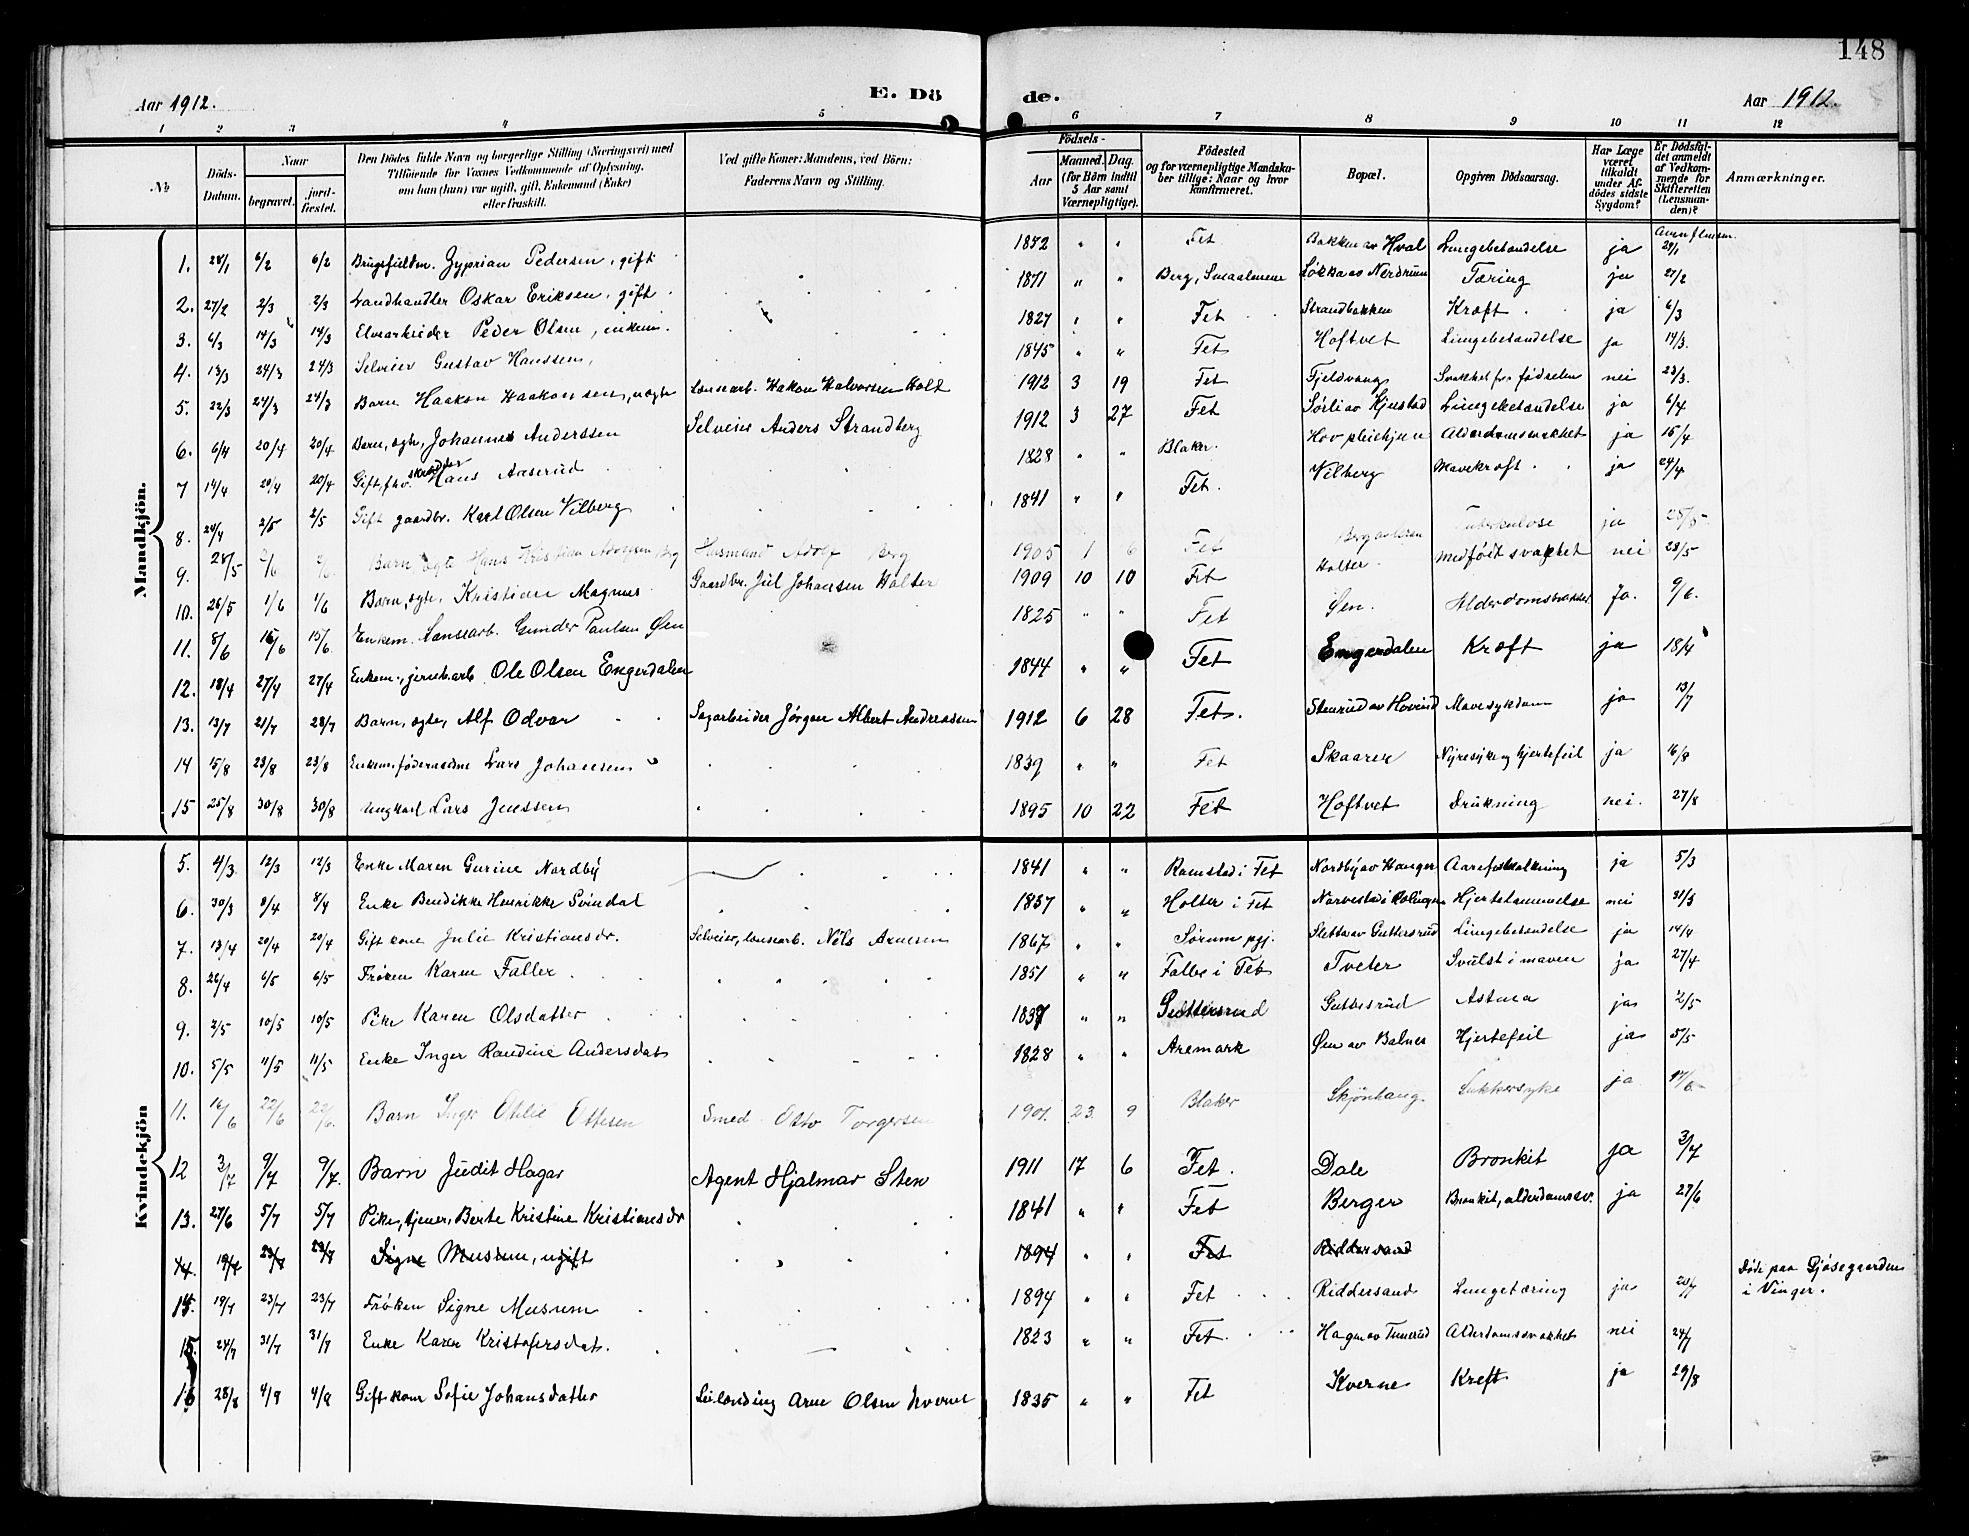 148
Aar 1912. E. Dö de. Aar 1912.
1 2 3 4 5 6 7 8 9 10 11 12
No Döds-Datum. Naar begravet. jordfæstet. Den Dödes fulde Navn og borgerlige Stilling (Næringsvei) med Tilföiende for Voxnes Vedkommende af Oplysning, om han (hun) var ugift, gift, Enkemand (Enke) eller fraskilt. Ved gifte Koner: Mandens, ved Börn: Faderens Navn og Stilling. Födsels- Aar Maaned. Dag. (for Börn indtil 5 Aar samt Værnepligtige). Födested og for værnepligtige Mandskaber tillige: Naar og hvor konfirmeret. Bopæl. Opgiven Dödsaarsag. Har Læge været tilkaldt under Afdödes sidste Sygdom? Er Dödsfaldet anmeldt af Vedkommende for Skifteretten (Lensmanden)? Anmærkninger.
Mandkjön.
1. 28/1 6/2 6/2 Zyprian Pedersen, gift 1872 " " Fet Bakken av Hval Lungebetændelse ja 29/1
2. 27/2 2/3 2/3 Landhandler Oskar Eriksen, gift 1871 " " Berg, Smaalenene Løkka av Nerdrum Tæring ja 27/2
3. 6/3 14/3 14/3 Elvearbeider Peder Olsen, enkem. 1827 " " Fet Strandbakken Kræft ja 6/3
4. 13/3 24/3 24/3 Selveier Gustav Hanssen, 1845 " " Fet Hoftvet Lungebetændelse ja 14/3.
5. 22/3 24/3 24/3 Barn Haakon Haakonsen, uægte Lønsearb. Hakon Halvorsen Holt 1912 3 19 Fet Fjeldvang Svakhet fra fødselen nei 23/3.
6. 6/4 20/4 20/4 Barn, ægte, Johannes Anderssen Selveier Anders Strandberg 1912 3 27 Fet Sørli av Hjustad Lungebetændelse ja 6/4
7 14/4 20/4 20/4 Gift, fhv. skrædder Hans Aaserud 1828 " " Blaker. Hov pleiehjem Alderdomssvakhet ja 15/4
8. 24/4 2/5 2/5 Gift gaardbr. Karl Olsen Vilberg 1841 " " Fet. Vilberg Mavekræft ja 24/4
9. 28/5 2/6 2/6 Barn ægte Hans Kristian Adolfsen Berg Husmand Adolf Berg 1905 1 6 Fet Tuberkulose ja 28/5
10. 26/5 1/6 1/6 Barn, ægte, Kristian Magnus Gaardbr. Jul Johansen Holter 1909 10 10 Fet Holter. Medfødt svakhet nei 28/5
11. 8/6 15/6 15/6 Enkem. Lænsearb. Gunder Paulsen Øen 1825 " " Fet Øen. Alderdomssvakhet Ja. 9/6.
12. 18/4 27/4 27/4 Enkem., jernb.arb. Ole Olsen Engerdalen 1844 " " Fet Engerdalen Kræft ja 18/4
13. 13/7 21/7 28/7 Barn, ægte, Alf Odvar Sagarbeider Jørgen Albert Andreassen 1912 6 28 Fet. Stenrud av Hovind Mavesykdom ja 13/7
14 15/8 23/8 23/8 Enkem. føderaadsm. Lars Johansen 1839 " " Fet Skaarer Nyresyke og hjertefeil ja 16/8
15 25/8 30/8 30/8 Ungkarl Lars Jenssen 1895 10 22 Fet Hoftvet Drukning nei. 27/8
Kvindekjön
5. 4/3 12/3 12/3 Enke Maren Gurine Nordby 1841 " " Ramstad i Fet Nordby av Hanger Aareforkalkning ja 5/3
6. 30/3 8/4 8/4 Enke Bendikke Henrikke Svindal 1837 " " Holter i Fet Hjertelammelse nei 31/3
7. 13/4 20/4 20/4 Gift kone Julie Kristiansdr. Selveier, lænsearb. Nils Arnesen 1867 " " Sørum pgj. Sletta av Guttersrud Lungebetændelse ja 14/4
8. 26/4 6/5 6/5 Frøken Karen Faller 1851 " " Falle i Fet Tveter Svulst i maven ja 27/4
9. 2/5 10/5 10/5 Pike Karen Olsdatter 1837 " " Guttersrud Guttersrud Astma ja 2/5
10. 5/5 11/5 11/5 Enke Inger Randine Andersdat 1828 " " Aremark Øen av Balnes Hjertefeil ja 5/5
11. 16/6 22/6 22/6. Barn Inger Othlie Ottesen Smed Otto Torgersen 1901. 23. 9 Blaker Skjönhaug Sukkersyke ja 17/6
12 3/7 9/7 9/7. Barn Judit Hagar Agent Hjalmar Sten 1911 17 6 Fet. Dale Bronkit ja 3/7
13. 27/6 5/7 5/7 Pike, tjener, Berte Kristine Kristiansdr 1841 " " Fet Berger Bronkit, alderdomssv. ja 27/6
14. 19/7 23/7 23/7 Signe Musum, ugift 1894 " " Fet Riddersand
15. 19/7 23/7 23/7 Frøken Signe Musum 1894 " " Fet Riddersand Lungetæring ja 20/7 Døde paa Gjøsegaarden i Vinger.
15. 24/7 31/7 31/7 Enke Karen Kristofersdat. 1823 " " Fet. Hagen av Tunerud Alderdomssvakhet nei 24/7
16 28/8 4/9 4/9 Gift kone Sofie Johansdatter Leilænding Arne Olsen Kverne 1835 " " Fet Kverne Kreft ja 29/8